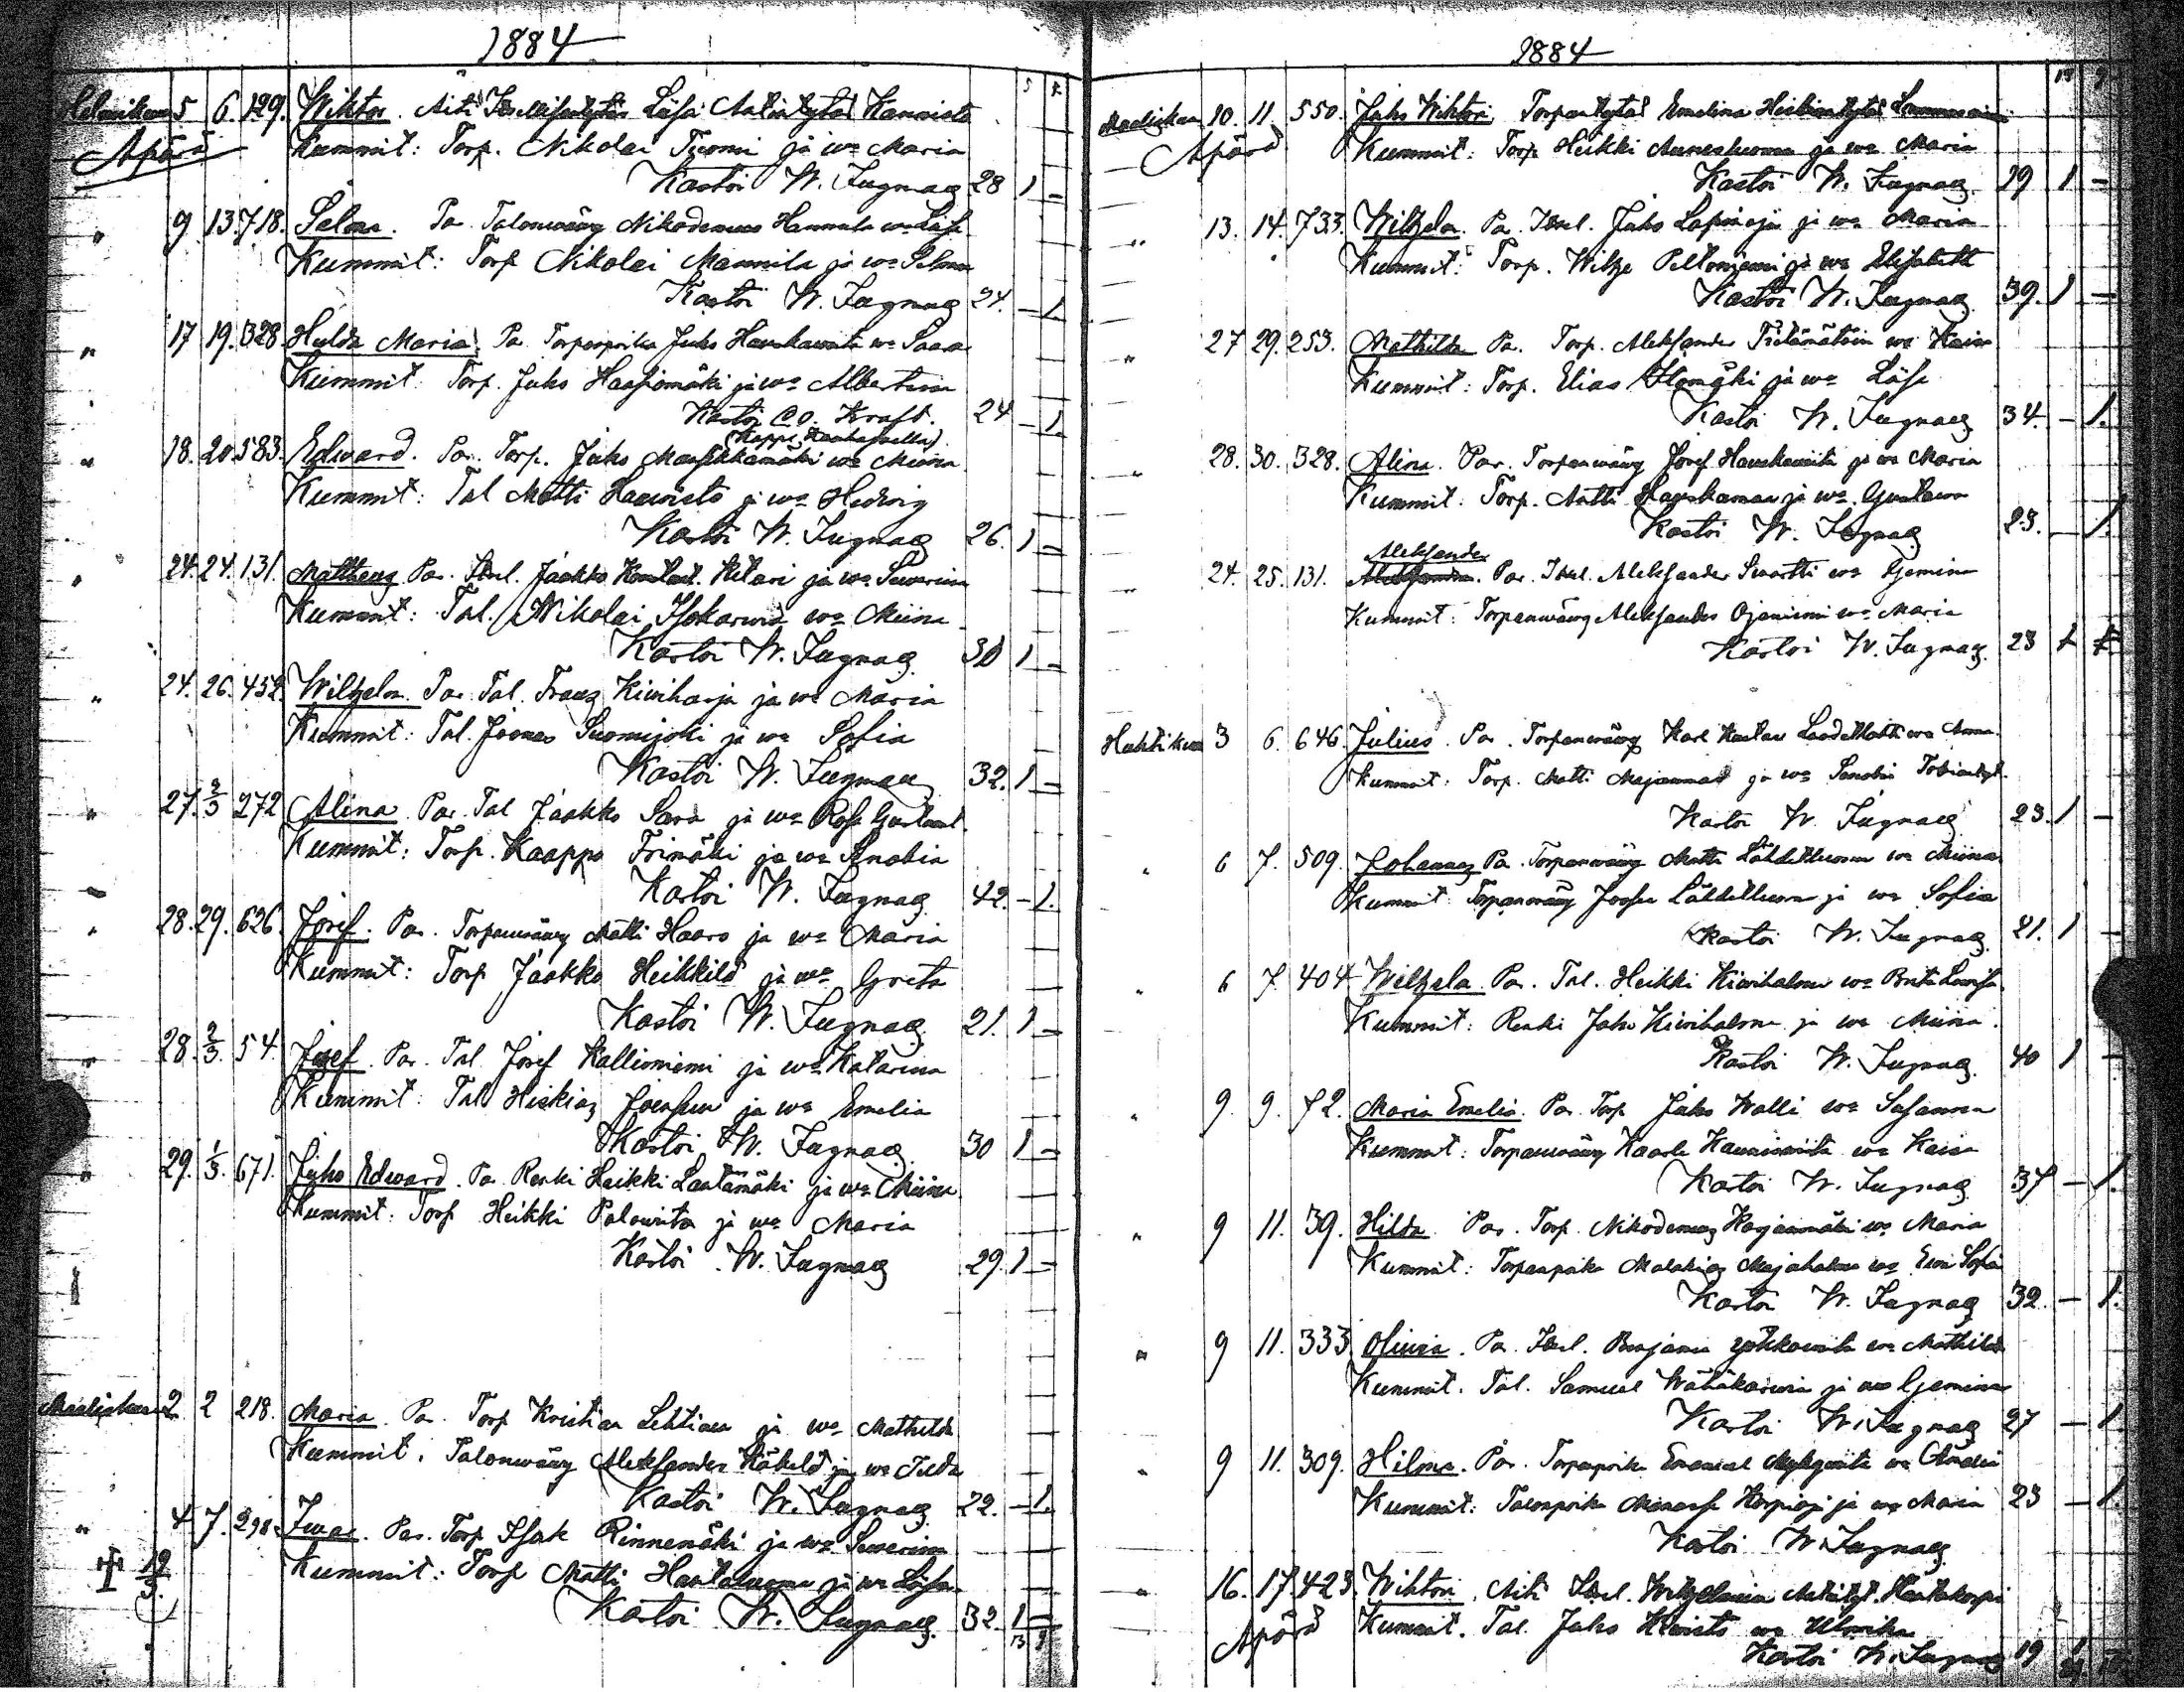 1884
Helmikuu 5 6. 129. Wiktor. Äiti Itsellisentytär Liisa Matintytär Kannisto
Äpärä Kummit: Torp. Nikolai Tuomi ja wo Maria
Kastoi W. Ingman 28 1 -
" 9 13. 718. Selma. Par. Talonwäwy Nikodemus Hannula wo Liisa
Kummit: Torp Nikolai Mannila ja wo Selma
Kastoi W. Ingman 24. - 1.
" 17 19. 328 Hulda Maria. Par. Torparpoika Juho Hauskawiita wo Saara
Kummit. Torp. Juho Haapamäki ja wo Albertina
Kastoi C. O. Kraft. 24 - 1.
(Kappl. Kauhajoella)
" 18. 20 583. Edward. Par. Torp. Juho Mansikkamäki wo Miina
Kummit: Tal Matti Haanisto ja wo Hedwig
Kastoi W. Ingman 26. 1 -
" 24. 24. 131. Mattheus Par. Itsel. Jaakko Ketari ja wo Sewerina
Kummit: Tal. Nikolai Isokorwia wo Miina
Kastoi W. Ingman 30 1 -
" 24. 26. 452. Wilhelm. Par. Tal. Frans Kiwiharja ja wo Maria
Kummit: Tal. Joonas Suomijoki ja wo Sofia
Kastoi W. Ingman 32. 1 -
" 27. 2/3 272 Alina Par. Tal Jaakko Sara ja wo Rosa Gustaat.
Kummit: Torp. Kaappo Trimäki ja wo Senobia
Kastoi W. Ingman 42. - 1.
" 28. 29. 626. Josef. Par. Torpanwäwy Matti Haaro ja wo Maria
Kummit: Torp Jaakko Heikkilä ja wo Greta
Kastoi W. Ingman 21. 1 -
" 28. 2/3. 54. Josef. Par. Tal Josef Kallioniemi ja wo Katarina
Kummit: Tal Hiskias Joensuu ja wo Emelia
Kastoi W. Ingman 30 1 -
" 29. 1/3. 671. Juho Edward. Par Renki Heikki Lautamäki ja wo Miina
Kummit: Torp Heikki Palowiita ja wo Maria
Kastoi W. Ingman 29. 1 -
Maaliskuu 2. 2 218. Maria. Par. Torp Kristian Lehtinen ja wo Mathilda
Kummit. Talonwäwy Aleksander Käkelä ja wo Tilda
Kastoi W. Ingman 22. - 1.
" 4 7. 298. Iwar. Par. Torp Isak Rinnemäki ja wo Sewerina
† 12/3. Kummit: Torp Matti Hautaluoma ja wo Liisa
Kastoi W. Ingman 32. 1 -
13 9
1884
13 9
Maaliskuu 10. 11. 550. Juho Wiktori Torparitytär Emelina Heikintytär
Äpärä Kummit: Torp Heikki Annesluoma ja wo Maria
Kastoi W. Ingman. 29 1 -
" 13. 14. 733. Wilhelm. Par. Itsel. Juho Lapinoja ja wo Maria
Kummit: Torp. Wilhe Peltoniemi ja wo Elisabeth
Kastoi W. Ingman 39. 1 -
" 27 29. 253. Mathilda Par. Torp. Aleksander Tietämätöin wo Kaisa
Kummit: Torp. Elias Ilomäki ja wo Liisa
Kastoi W. Ingman 34. - 1.
" 28. 30. 328. Alina. Par. Torpanwäwy Josef Hauskawiita ja wo Maria
Kummit. Torp. Antti Hauskamaa ja wo Gustawa
Kastoi W. Ingman 23. - 1.
Aleksander
" 24. 25. 131. Par. Itsel. Aleksander Swartti wo Gemina
Kummit: Torpanwäwy Aleksander Ojaniemi wo Maria
Kastoi W. Ingman. 23
Huhtikuu 3 6. 646. Julius. Par. Torpanwäwy Karl Kustaa wo Anna
Kummit: Torp. Matti Majanmaa ja wo Senobia Tobiaatyt.
Kastoi W. Ingman 23. 1 -
" 6 7. 509. Johannes Par. Torpanwäwy Matti Lähdetluoma wo Miina
Kummit Torpanwäwy Joosua Lähdetluoma ja wo Sofia
Kastoi W. Ingman. 21. 1 -
" 6 7 404 Wilhelm. Par. Tal. Heikki Kiwihalme wo Brita Lowisa
Kummit: Renki Juho Kiwihalme ja wo Miina.
Kastoi W. Ingman. 40 1 -
" 9. 9. 72. Maria Emelia. Par. Torp Juho Walli wo Susanna
Kummit: Torpanwäwy Kaarle wo Kaisa
Kastoi W. Ingman 37 - 1.
" 9 11. 39. Hilda Par. Torp. Nikodemus Harjanmäki wo Maria
Kummit: Torparpoika Malakias Majahalme wo Ewa Sofia
Kastoi W. Ingman 32. - 1.
" 9 11. 333 Oliwia. Par. Itsel. Benjamin wo Mathilda
Kummit. Tal. Samuel Wähäkorwia ja wo Gemina
Kastoi W. Ingman 27 - 1.
" 9 11. 309. Hilma. Par. Torparpoika Emanuel wo Amalia
Kummit: Talonpoika Manasse Korpioja ja wo Maria 23 - 1.
Kastoi W. Ingman
" 16. 17. 423. Wiktori. Äiti Itsel. Wilhelmina Matintyt. Hautakorpi
Äpärä Kummit. Tal. Juho Kiwisto wo Ulrika
Kastoi W. Ingman 19 1